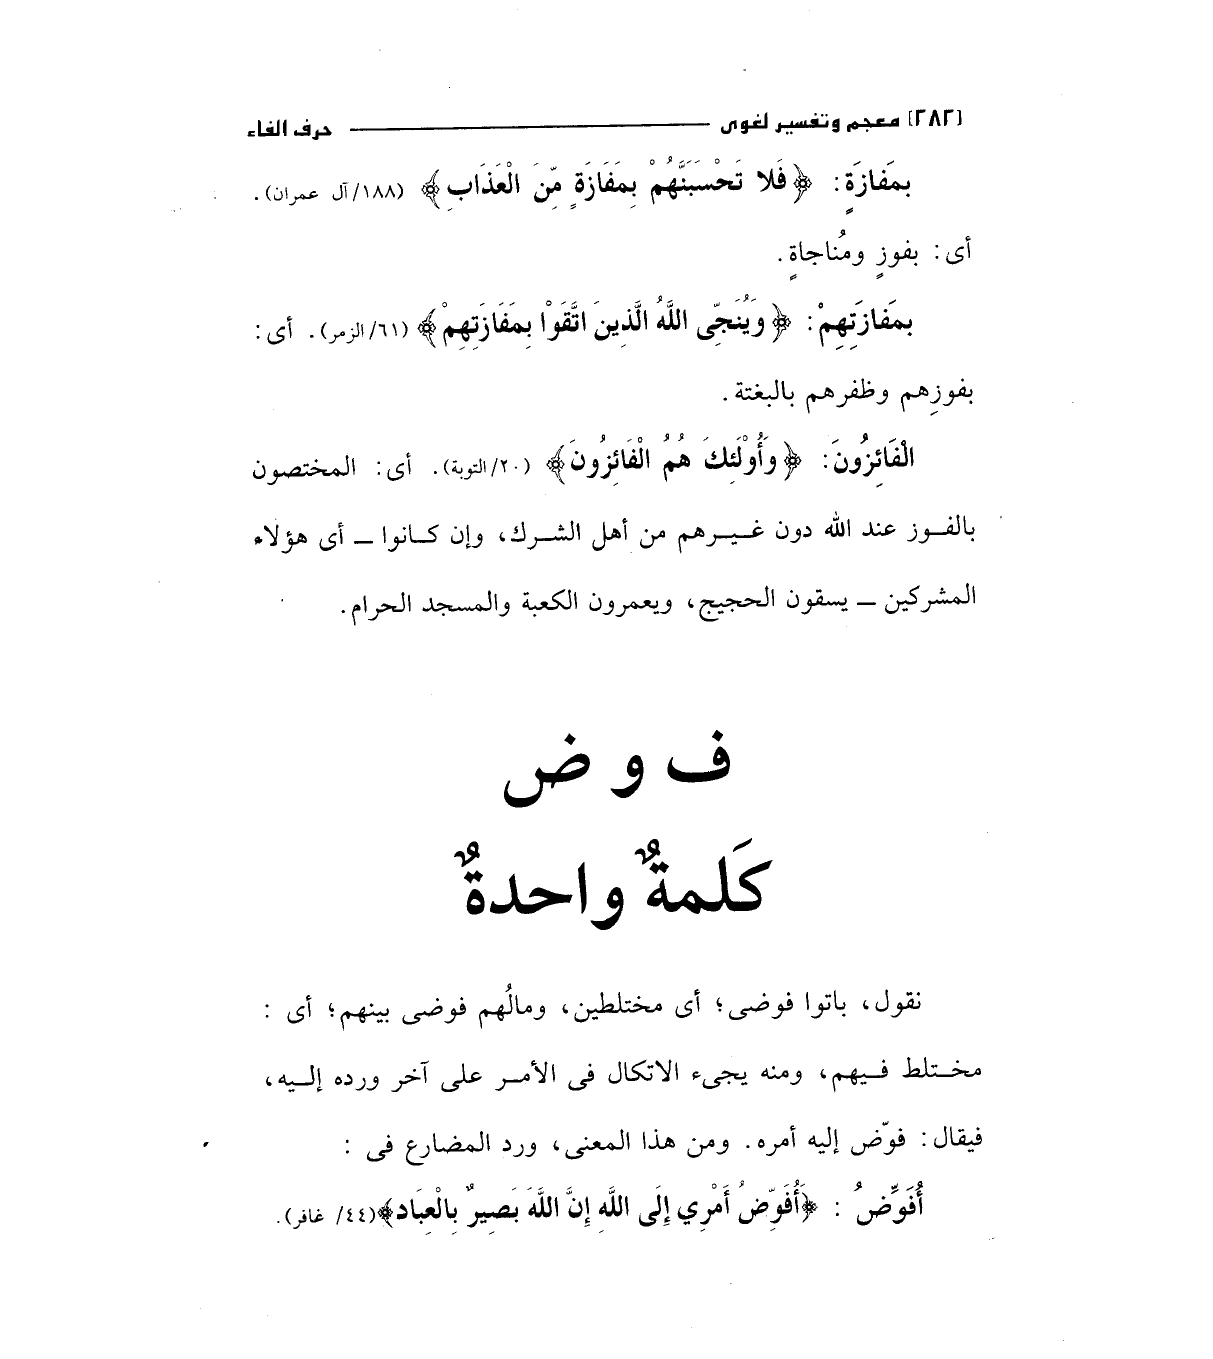 [٢٨٢] معجم وتفسير لغوى ــــــ حرف الفاء
بمَفازَةٍ: ﴿فَلا تَحْسَبَنَّهُمْ بِمَفَازَةٍ مِّنَ الْعَذَابِ﴾ (١٨٨/آل عمران).
أى: بفوزٍ ومُناجاةٍ.
بمَفازَتِهِمْ: ﴿وَيُنَجِّى اللَّهُ الَّذِينَ اتَّقَوْا بِمَفَازَتِهِمْ﴾ (٦١/الزمر). أى:
بفوزِهم وظفرهم بالبغتة.
الْفَائِزُونَ: ﴿وَأُوْلَئِكَ هُمُ الْفَائِزُونَ﴾ (٢٠/التوبة). أى: المختصون
بالفوز عند الله دون غيرهم من أهل الشرك، وإن كانوا ــ أى هؤلاء
المشركين ــ يسقون الحجيج، ويعمرون الكعبة والمسجد الحرام.
ف و ض
كَلمةٌ واحدةٌ
نقول، باتوا فوضى؛ أى مختلطين، ومالُهم فوضى بينهم؛ أى :
مختلط فيهم، ومنه يجىء الاتكال فى الأمر على آخر ورده إليه،
فيقال: فوّض إليه أمره. ومن هذا المعنى، ورد المضارع فى :
أُفَوِّضُ : ﴿أُفَوِّضُ أَمْرِي إِلَى اللَّهِ إِنَّ اللَّهَ بَصِيرٌ بِالْعِبَادِ﴾(٤٤/ غافر).